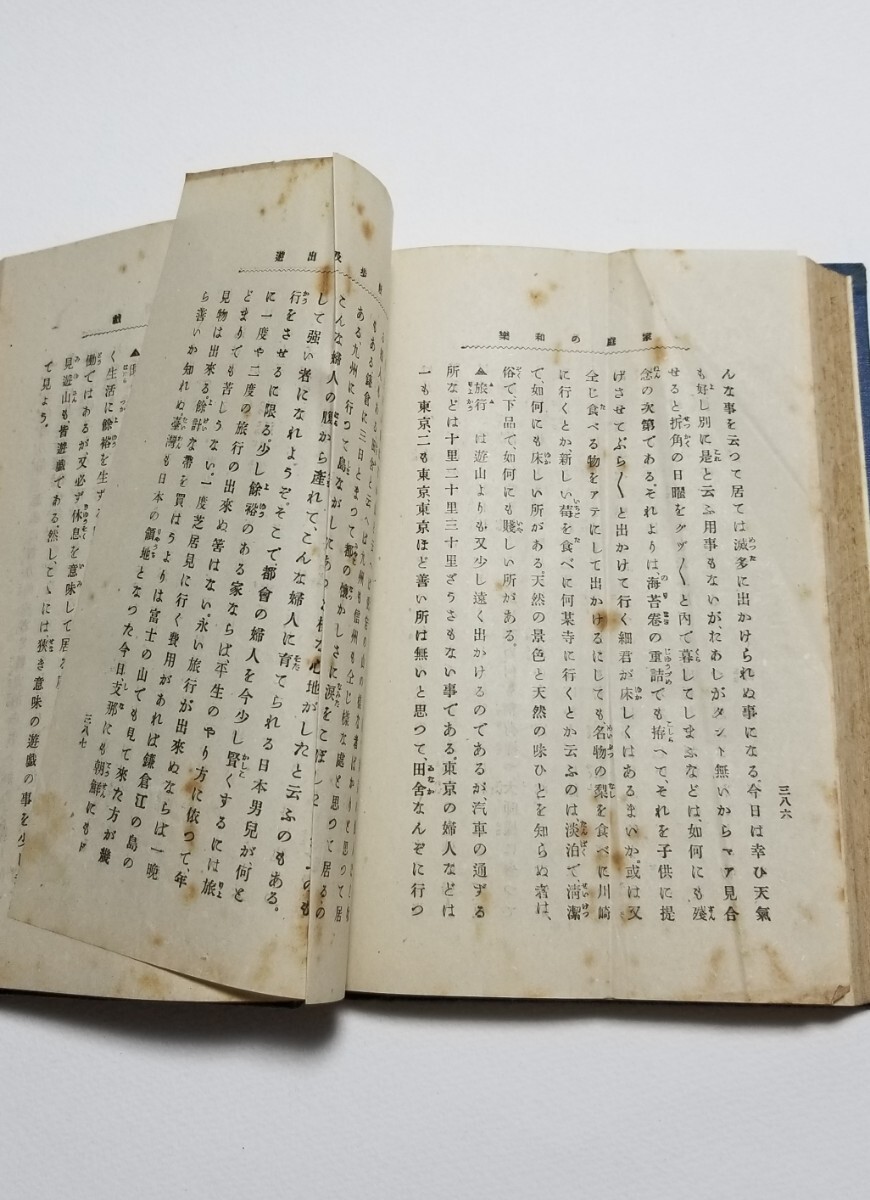 家庭の和樂
三八六
んな事を云つて居ては滅多に出かけられぬ事になる。今日は幸ひ天氣
も好し別に是と云ふ用事もないが、たあしがタント無いからマア見合
せると折角の日曜をグヅ〱と內で暮してしまふなどは、如何にも殘
念の次第である。それよりは、海苔卷の重詰でも拵へて、それを子供に提
げさせてぶら〱と出かけて行く細君が床しくはあるまいか。或は又
仝じ食べる物をアテにして出かけるにしても、名物の梨を食べに川崎
に行くとか新しい莓を食べに何某寺に行くとか云ふのは、淡泊で、淸潔
で、如何にも床しい所がある。天然の景色と天然の味ひとを知らぬ者は、
俗で、下品で、如何にも賤しい所がある。
▲旅行 は遊山よりも又少し遠く出かけるのであるが、汽車の通ずる
所などは十里二十里三十里ざうさもない事である。東京の婦人などは
一も東京、二も東京、東京ほど善い所は無いと思つて、田舍なんぞに行つ
及出遊
もある鎌倉に三日とまつて都の懷かしさに淚をこぼし
ある九州に行つて島ながしにあつた樣な心地がしたと云ふのもある。
こんな婦人の腹から產れて、こんな婦人に育てられる日本男兒が、何と
して强い者になれようぞ。そこで、都會の婦人を今少し賢くするには旅
行をさせるに限る。少し餘裕のある家ならば、平生のやり方に依つて、年
に一度や二度の旅行の出來ぬ筈はない。永い旅行が出來ぬならば一晚
どまりでも苦しうない。一度芝居見に行く費用があれば鎌倉江の島の
見物は出來る。餘計な帶を買はうよりは富士の山でも見て來た方が幾
ら善いか知れぬ。臺灣も日本の領地となつた今日、支那にも朝鮮にも
三八七
く生活に餘裕を生ず
働ではあるが、又必ず休息を意味して居る
見遊山も皆遊戲である。然しこゝには狹き意味の遊戲の事を少し
で見よう。